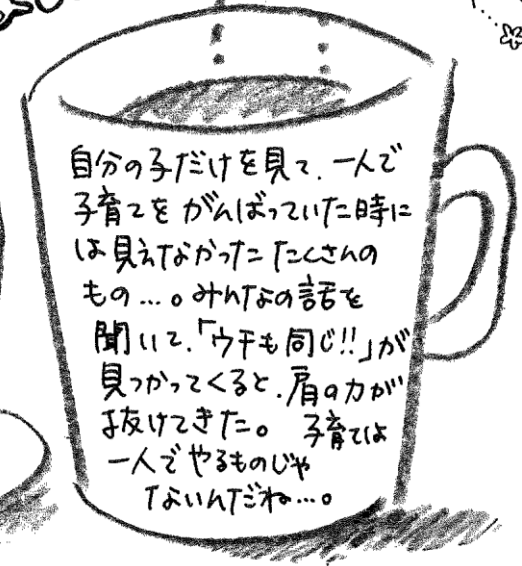 自分の子だけを見て、一人で
子育てを がんばっていた時に
は見えなかった たくさんの
もの…。みんなの話を
聞いて、「ウチも同じ!!」が
見つかってくると、肩の力が
抜けてきた。 子育ては
一人でやるものじゃ
ないんだね…。